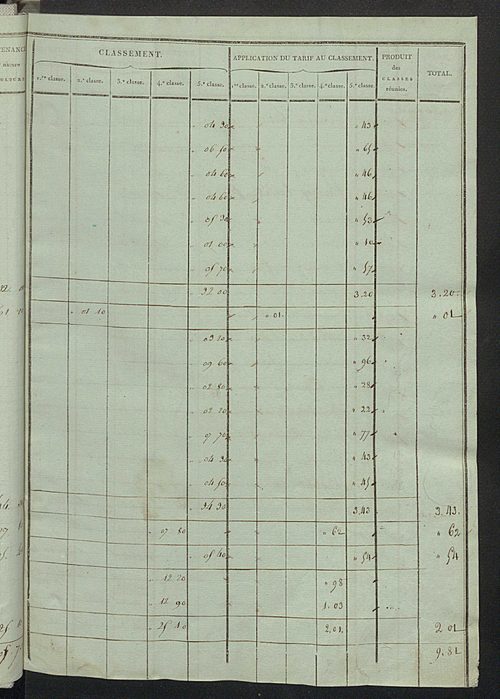 TENANCE
CLASSEMENT. APPLICATION DU TARIF AU CLASSEMENT. PRODUIT des CLASSES réunies. TOTAL.
1.re classe. 2.e classe. 3.e classe. 4.e classe. 5.e classe. 1.re classe. 2.e classe. 3.e classe. 4.e classe. 5.e classe.
04 30 " 43
06 50 " 65
04 60 " 46
04 60 " 46
05 30 " 53
01 00 " 10
05 70 " 57
32 00 3.20 3.20
01 10 " 01. " 01
03 20 " 32
09 60 " 96
02 80 " 28
02 20 " 22
07 70 " 77
04 30 " 43
04 50 " 45
34 30 3.43 3.43.
07 80 " 62 " 62
05 40 " 54 " 54
12 20 " 98
12 90 1.03
25 10 2.01. 2 01
9.81